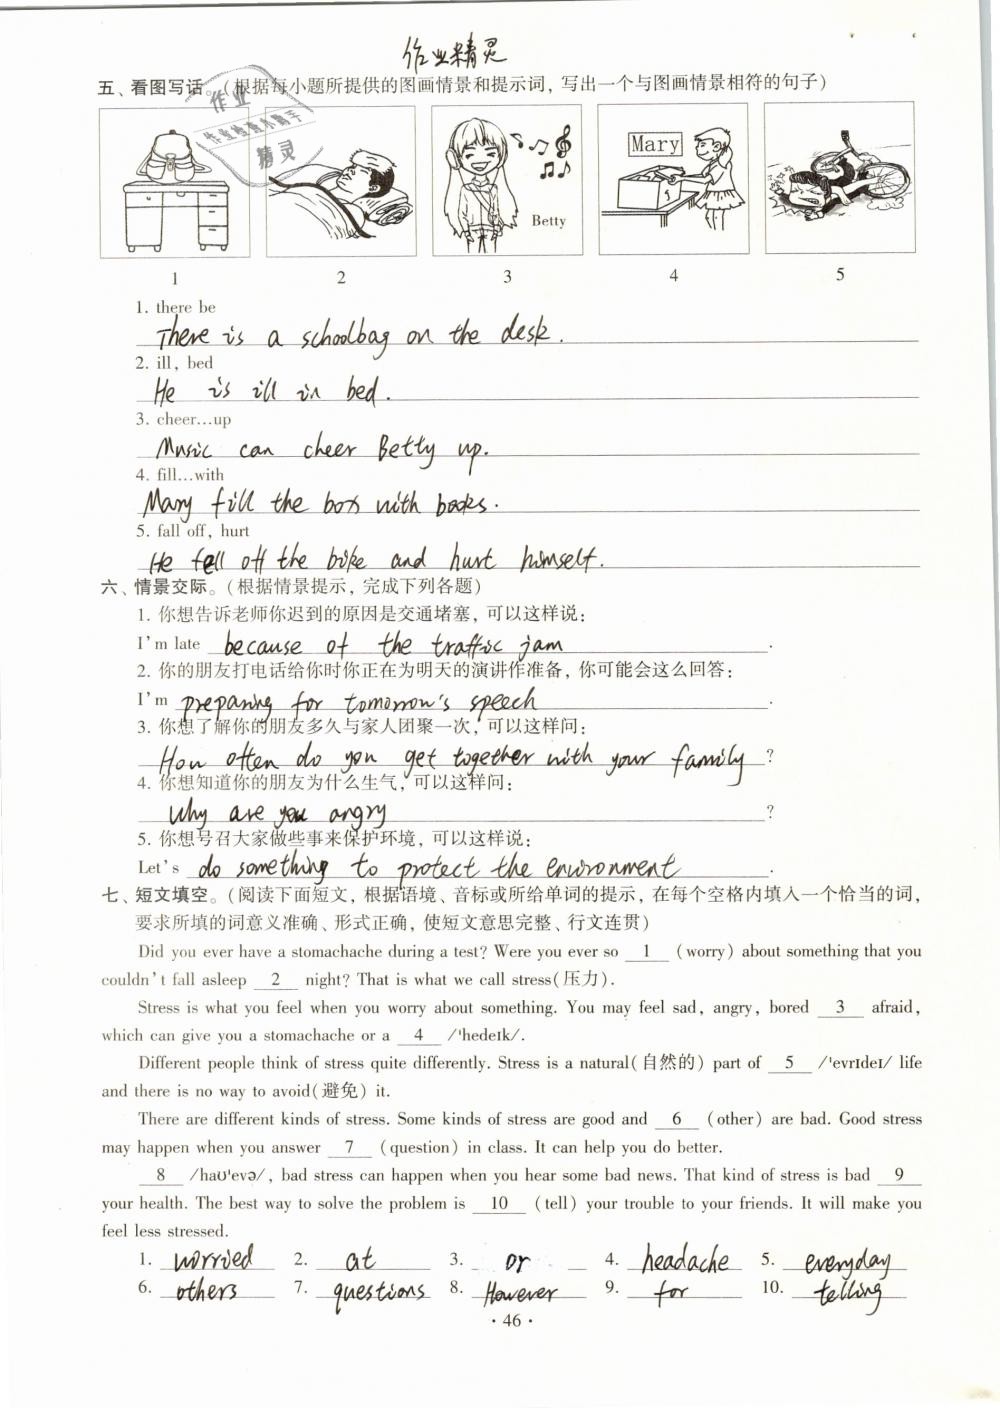 作业精灵
五、看图写话。(根据每小题所提供的图画情景和提示词，写出一个与图画情景相符的句子)
作业
作业检查小助手
精灵
Mary
Betty
1 2 3 4 5
1. there be
There is a schoolbag on the desk.
2. ill, bed
He is ill in bed.
3. cheer...up
Music can cheer Betty up.
4. fill...with
Mary fill the box with books.
5. fall off, hurt
He fell off the bike and hurt himself.
六、情景交际。(根据情景提示，完成下列各题)
1. 你想告诉老师你迟到的原因是交通堵塞，可以这样说:
I'm late because of the traffic jam.
2. 你的朋友打电话给你时你正在为明天的演讲作准备，你可能会这么回答:
I'm preparing for tomorrow's speech.
3. 你想了解你的朋友多久与家人团聚一次，可以这样问:
How often do you get together with your family?
4. 你想知道你的朋友为什么生气，可以这样问:
Why are you angry?
5. 你想号召大家做些事来保护环境，可以这样说:
Let's do something to protect the environment.
七、短文填空。(阅读下面短文，根据语境、音标或所给单词的提示，在每个空格内填入一个恰当的词，
要求所填的词意义准确、形式正确，使短文意思完整、行文连贯)
Did you ever have a stomachache during a test? Were you ever so 1 (worry) about something that you
couldn't fall asleep 2 night? That is what we call stress(压力).
Stress is what you feel when you worry about something. You may feel sad, angry, bored 3 afraid,
which can give you a stomachache or a 4 /'hedeɪk/.
Different people think of stress quite differently. Stress is a natural(自然的) part of 5 /'evrɪdeɪ/ life
and there is no way to avoid(避免) it.
There are different kinds of stress. Some kinds of stress are good and 6 (other) are bad. Good stress
may happen when you answer 7 (question) in class. It can help you do better.
8 /haʊ'evə/, bad stress can happen when you hear some bad news. That kind of stress is bad 9
your health. The best way to solve the problem is 10 (tell) your trouble to your friends. It will make you
feel less stressed.
1. worried 2. at 3. or 4. headache 5. everyday
6. others 7. questions 8. However 9. for 10. telling
· 46 ·